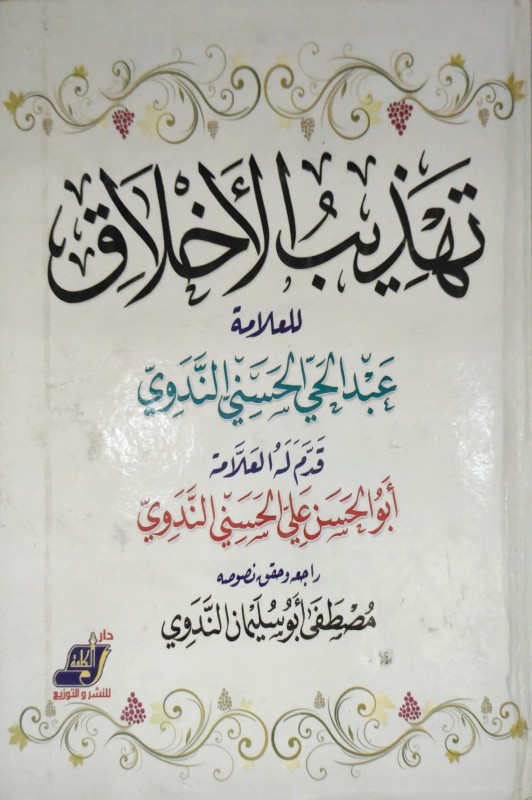 تهذيب الأخلاق
للعلامة
عَبْد الحَيّ الحَسَنِيّ النَّدَوِيّ
قَدَّمَ لَهُ العَلَّامَة
أَبُو الحَسَن عَلِيّ الحَسَنِيّ النَّدَوِيّ
راجعه وحقق نصوصه
مُصْطَفَى أَبُو سُلَيْمَان النَّدَوِي
دار
الكلمة
للنشر و التوزيع